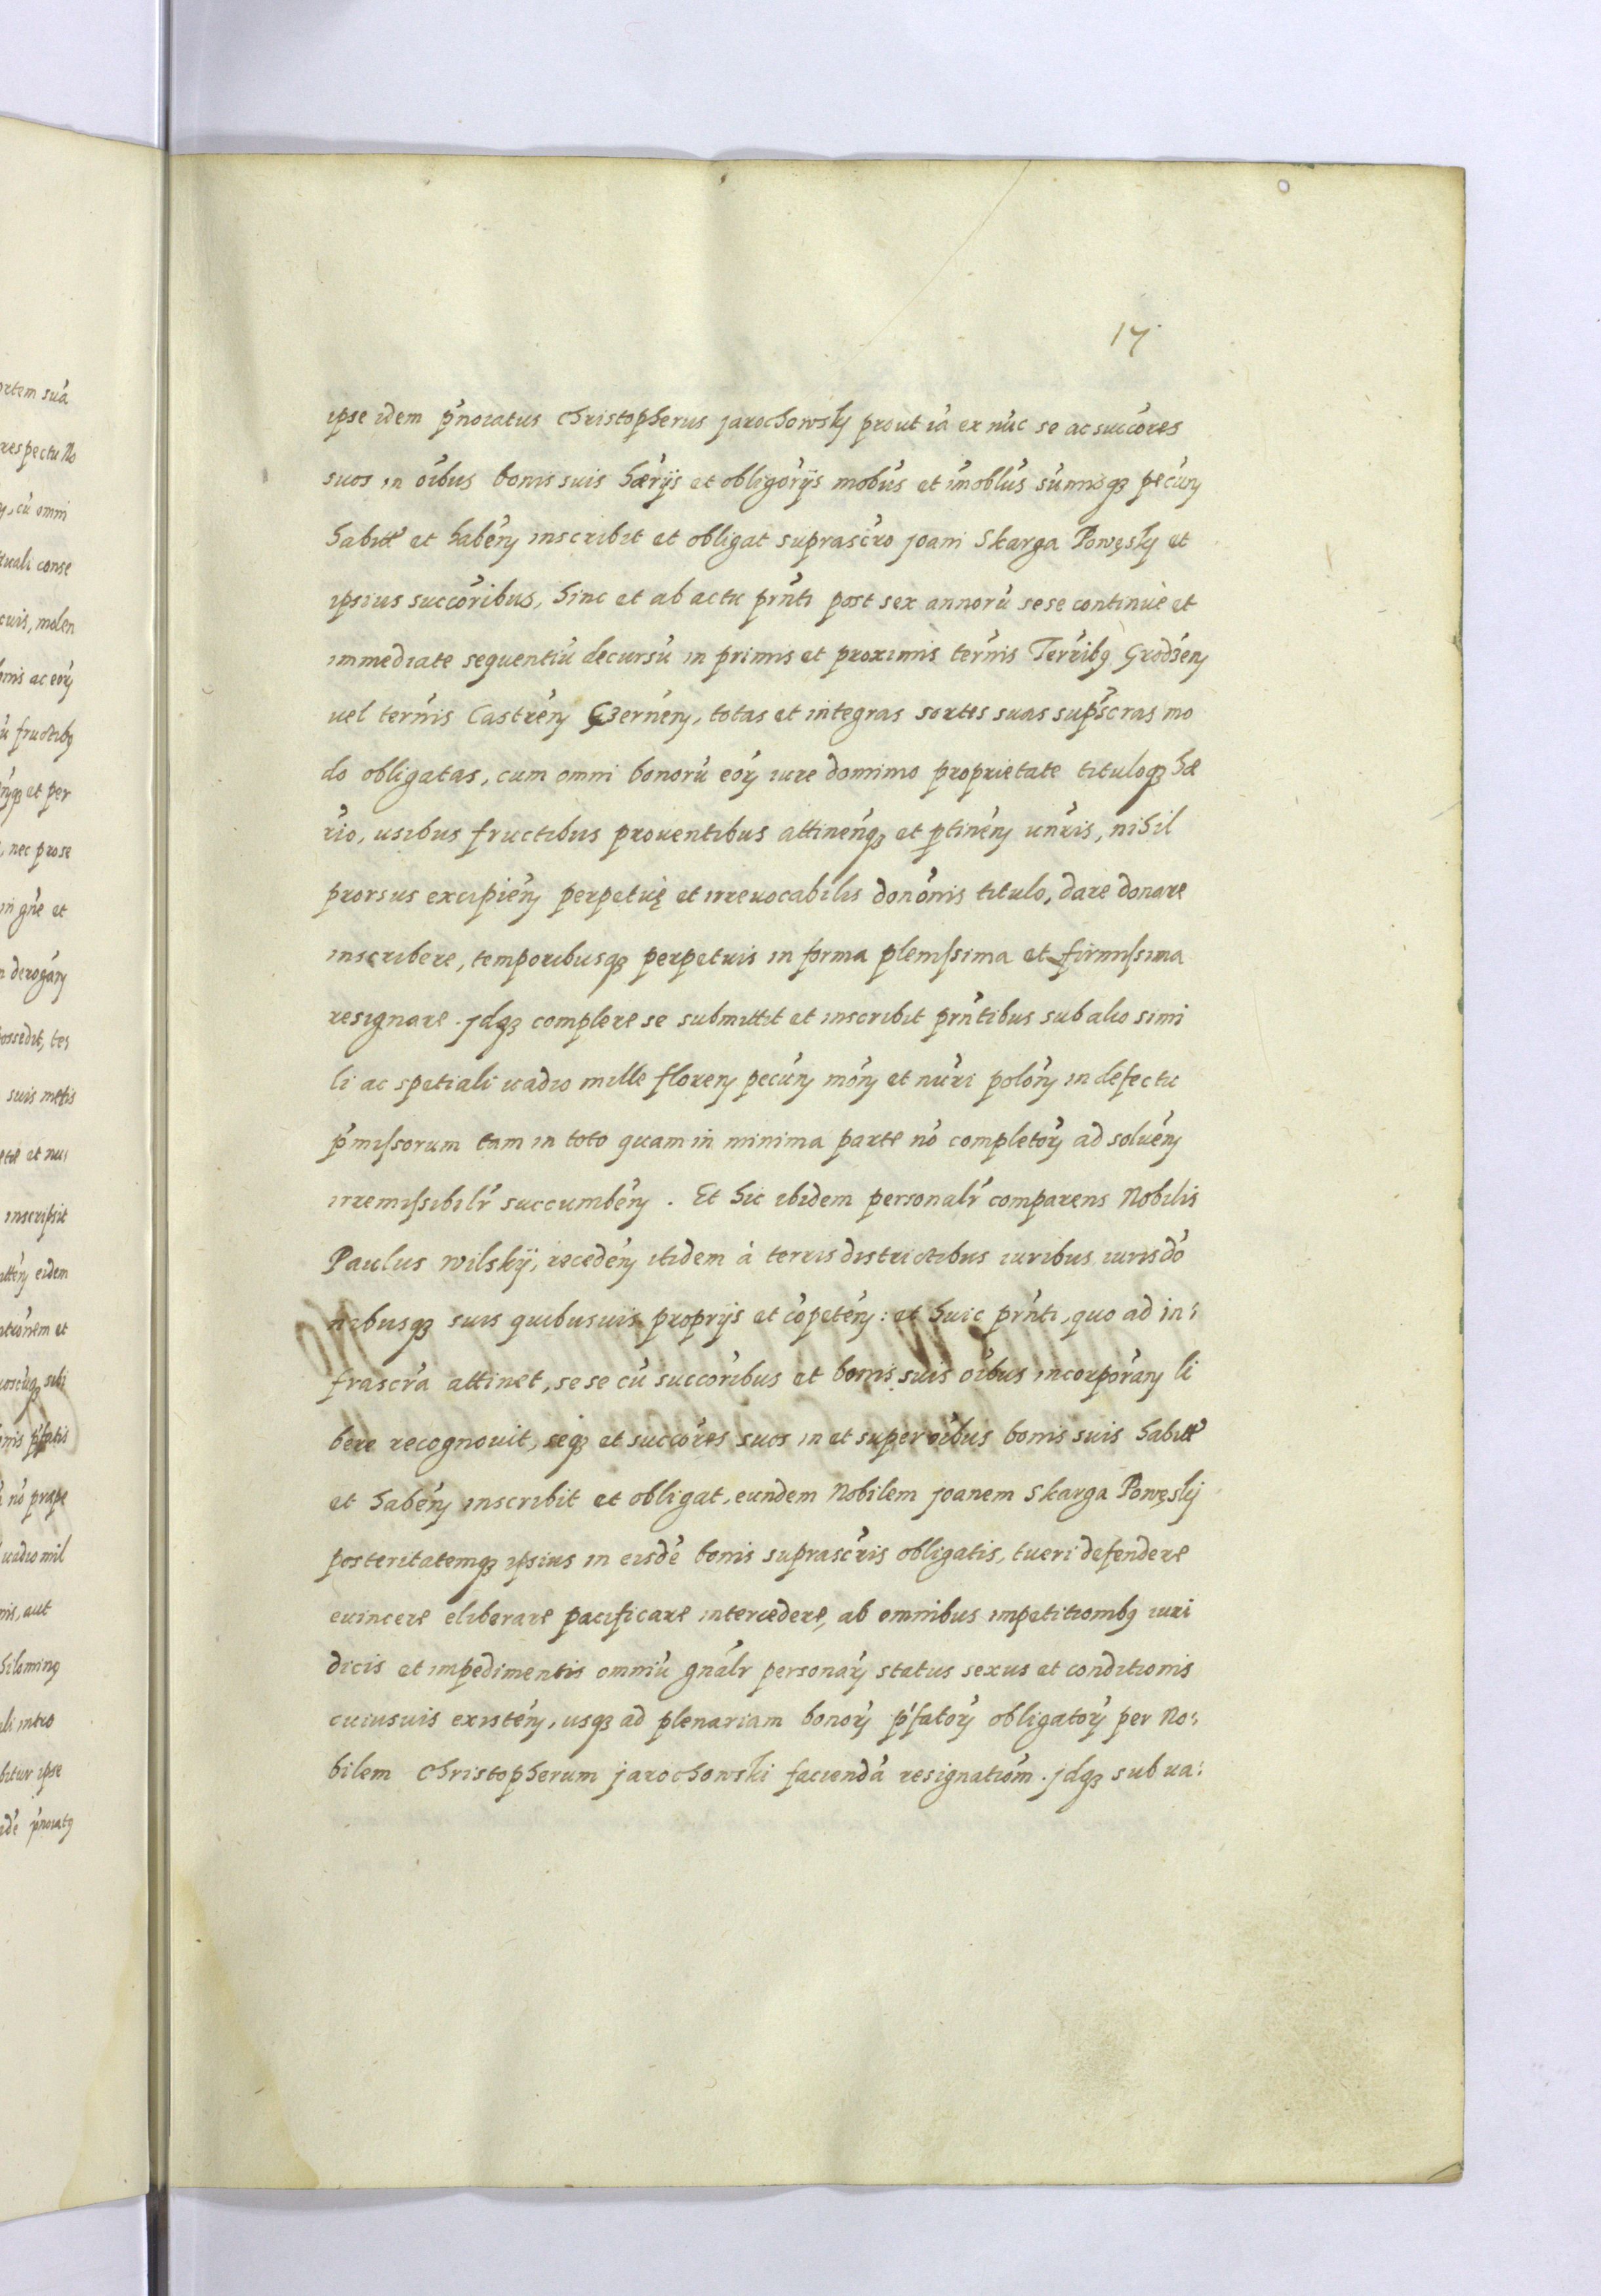 17
ipse idem p̃noiatus Christopherus Jarochowsky prout iã ex nũc se ac succ̃ores
suos in õibus bonis suis hær̃ijs et obligor̃ijs mob̃us et im̃obl̃us sum̃isq3 pecũn
habit̃ et habeñ inscribit et obligat suprascr̃o Joani Skarga Powęsky et
ipsius succor̃ibus, hinc et ab actu prñti post sex annorũ sese continuè et
immediate sequentiũ decursũ in primis et proximis ter̃nis Terr̃ib9 Grodzeñ
uel ter̃nis Castreñ Czerneñ, totas et integras sortes suas sup̃scras mo
do obligatas, cum omni bonorũ eor̃ iure dominio proprietate tituloq3 hæ
r̃io, usibus fructibus prouentibus attineñq3 et ptineñ unr̃is, nihil
prorsus excipieñ perpetuę et irreuocabilis donõnis titulo, dare donare
inscribere, temporibusq3 perpetuis in forma plenissima et firmissima
resignare. Jdq3 complere se submittit et inscribit prñtibus sub alio simi
li ac spetiali uadio mille floreñ pecũn moñ et nũri poloñ in defectu
p̃missorum tam in toto quam in minima parte nõ completor̃ ad soluẽn
irremissibilr̃ succumbeñ. Et hic ibidem personalr̃ comparens Nobilis
Paulus Wilskÿ, recedeñ itidem à terris districtibus iuribus iurisdõ
nibusq3 suis quibusuis proprijs et cõpeteñ: et huic prñti, quo ad in:
frascr̃a attinet, sese cũ succor̃ibus et bonis suis õibus incorporañ li
bere recognouit, seq3 et succor̃es suos in et super õibus bonis suis habit̃
et habeñ inscribit et obligat, eundem Nobilem Joanem Skarga Powęsky
posteritatemq3 ipsius in eisdẽ bonis suprascr̃is obligatis, tueri defendere
euincere eliberare pacificare intercedere, ab omnibus impetitionib9 iuri
dicis et impedimentis omniũ gnãlr personar̃ status sexus et conditionis
cuiusuis existeñ, usq3 ad plenariam bonor̃ p̃fator̃ obligator̃ per No:
bilem Christopherum Jarochowski faciendã resignatiõm. Jdq3 sub ua: